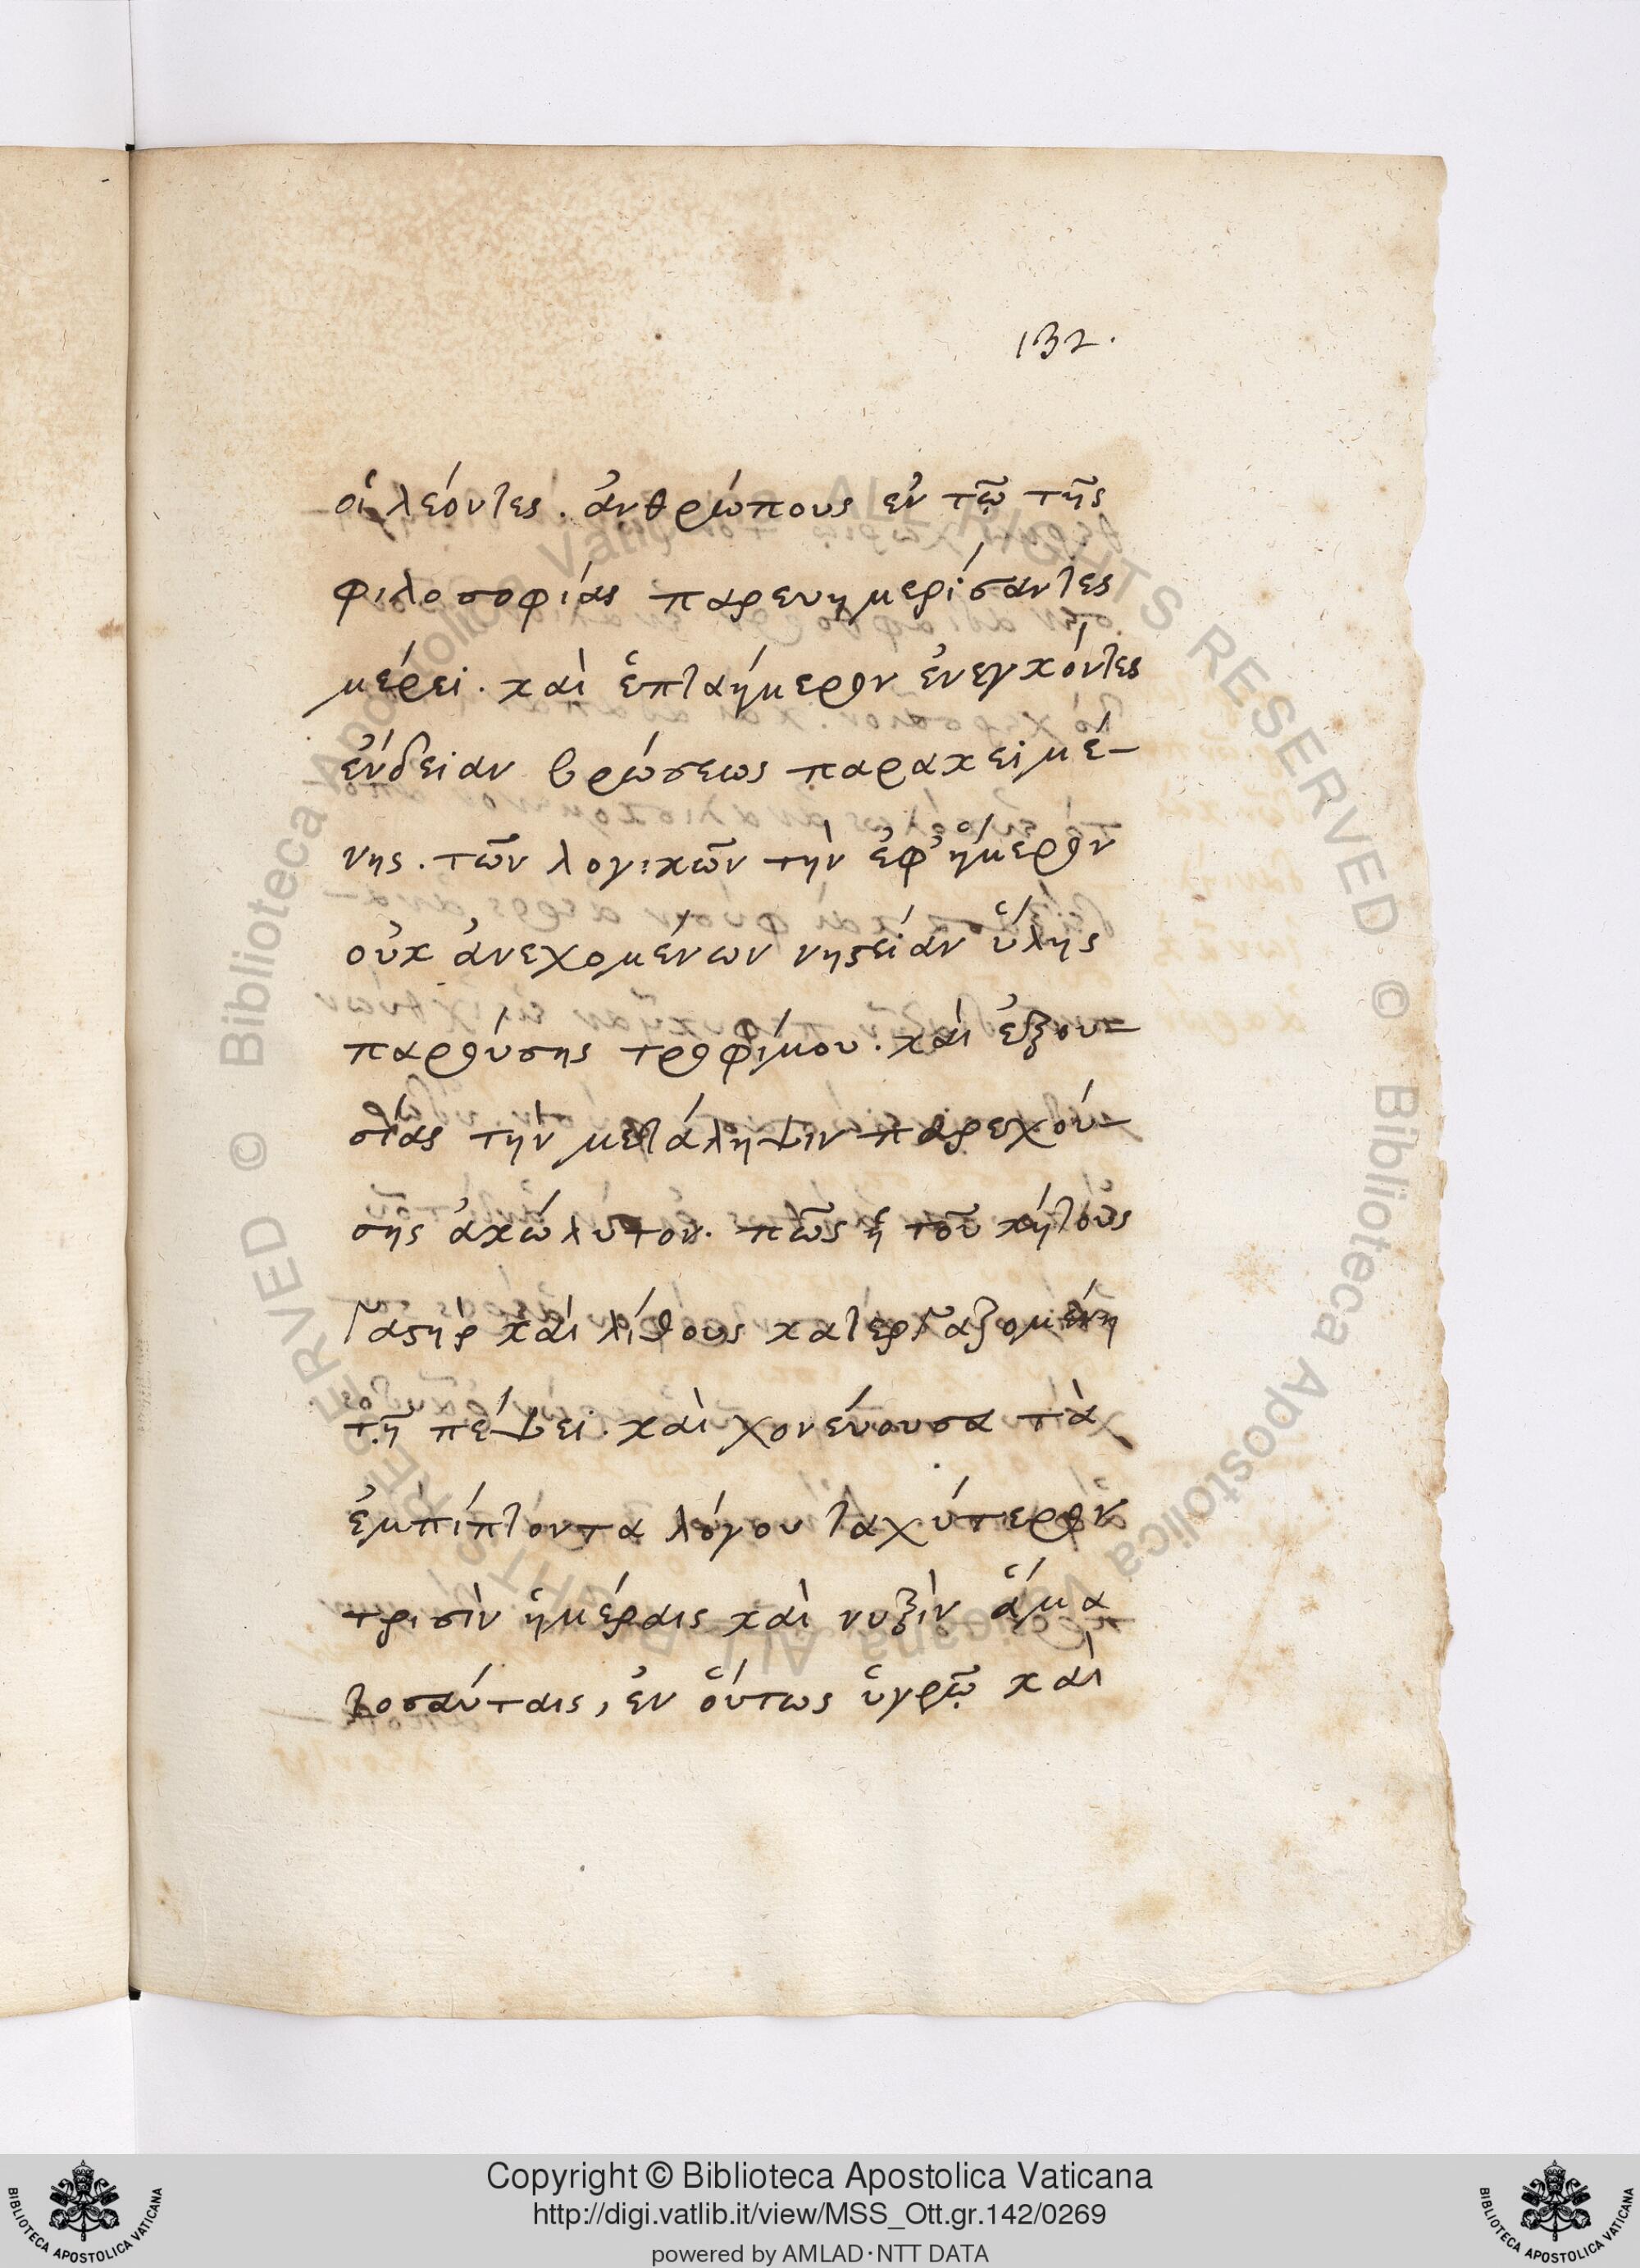 132.
οἱ λέοντες. ἀνθρώπους ἐν τῷ τῆς
φιλοσοφίας παρευημερίσαντες
μέρει. καὶ ἑπταήμερον ἐνεγκόντες
ἔνδειαν βρώσεως παρακειμέ-
νης. τῶν λογικῶν τὴν ἐφ' ἡμέρον
οὐκ ἀνεχομένων νηστείαν ὕλης
παρούσης τροφίμου. καὶ ἐξου-
σίας τὴν μετάληψιν παρεχού-
σης ἀκώλυτον. πῶς ἡ τοῦ κήτους
γαστὴρ καὶ λίθους κατεργαζομένη
τῇ πέψει. καὶ χονεύουσα τὰ
ἐμπίπτοντα λόγου ταχύτερον
τρισὶν ἡμέραις καὶ νυξὶν ἅμα
τοσαύταις, ἐν οὕτως ὑγρῷ καὶ
Copyright © Biblioteca Apostolica Vaticana
http://digi.vatlib.it/view/MSS_Ott.gr.142/0269
powered by AMLAD·NTT DATA
BIBLIOTECA APOSTOLICA VATICANA
BIBLIOTECA APOSTOLICA VATICANA